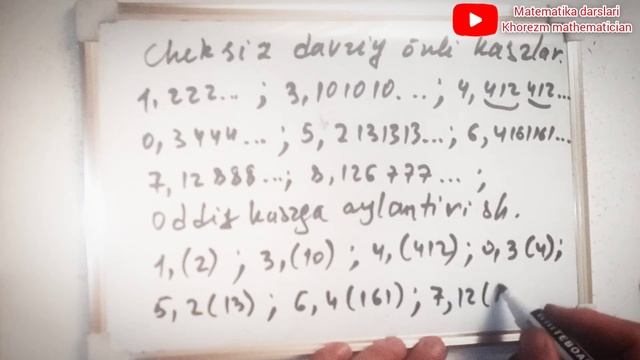 Matematika darslari
Khorezm mathematician
Cheksiz davriy o'nli kasrlar.
1,222...; 3,101010...; 4,412412...
0,3444...; 5,2131313...; 6,4161161...
7,12888...; 8,126777...;
Oddiy kasrga aylantirish.
1,(2); 3,(10); 4,(412); 0,3(4);
5,2(13); 6,4(161); 7,12(